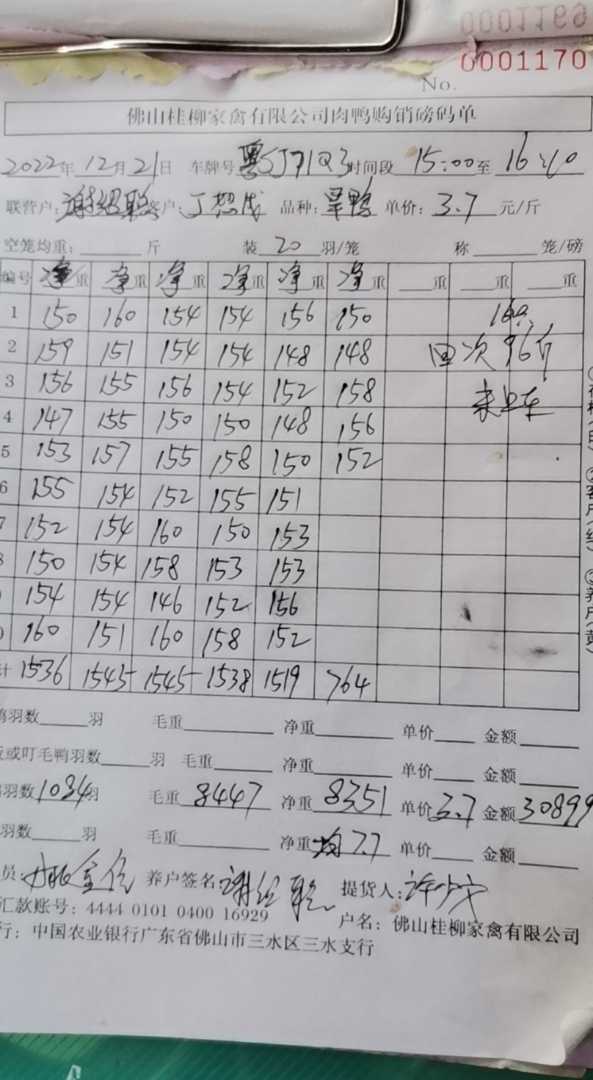 0001169
No. 0001170
佛山桂柳家禽有限公司肉鸭购销磅码单
2022年12月21日 车牌号 时间段 15:00至16:10
联营户: 客户: 品种: 旱鸭 单价: 3.7元/斤
空笼均重: 斤 装20羽/笼 称 笼/磅
编号 净重 净重 净重 净重 净重 净重 重 重 重
1 150 160 154 154 156 150
2 159 151 154 154 148 148 回次96斤
3 156 155 156 154 152 158 未上车
4 147 155 150 150 148 156
5 153 157 155 158 150 152
6 155 154 152 155 151
7 152 154 160 150 153
8 150 154 158 153 153
154 154 146 152 156
0 160 151 160 158 152
计 1536 1545 1545 1538 1519 764
鸭羽数 羽 毛重 净重 单价 金额
或叮毛鸭羽数 羽 毛重 净重 单价 金额
羽数1084羽 毛重8447 净重8351 单价3.7 金额30899
羽数 羽 毛重 净重均7.7 单价 金额
员: 养户签名: 提货人:
汇款账号: 4444 0101 0400 16929 户名: 佛山桂柳家禽有限公司
行: 中国农业银行广东省佛山市三水区三水支行